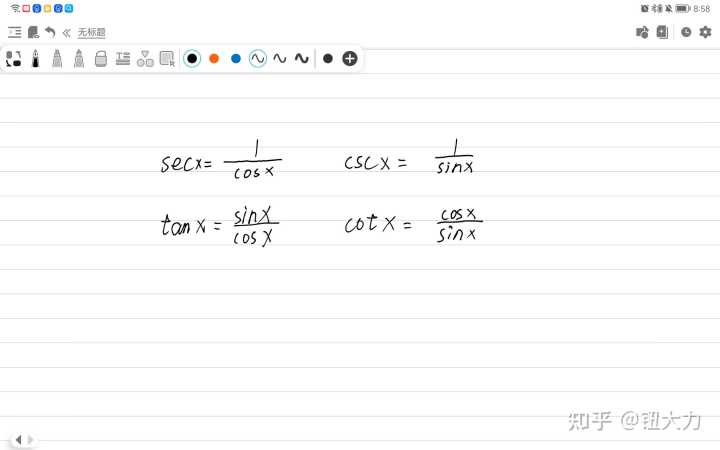 8:58
无标题
secx = 1/cosx cscx = 1/sinx
tanx = sinx/cosx cotx = cosx/sinx
知乎 @钮大力